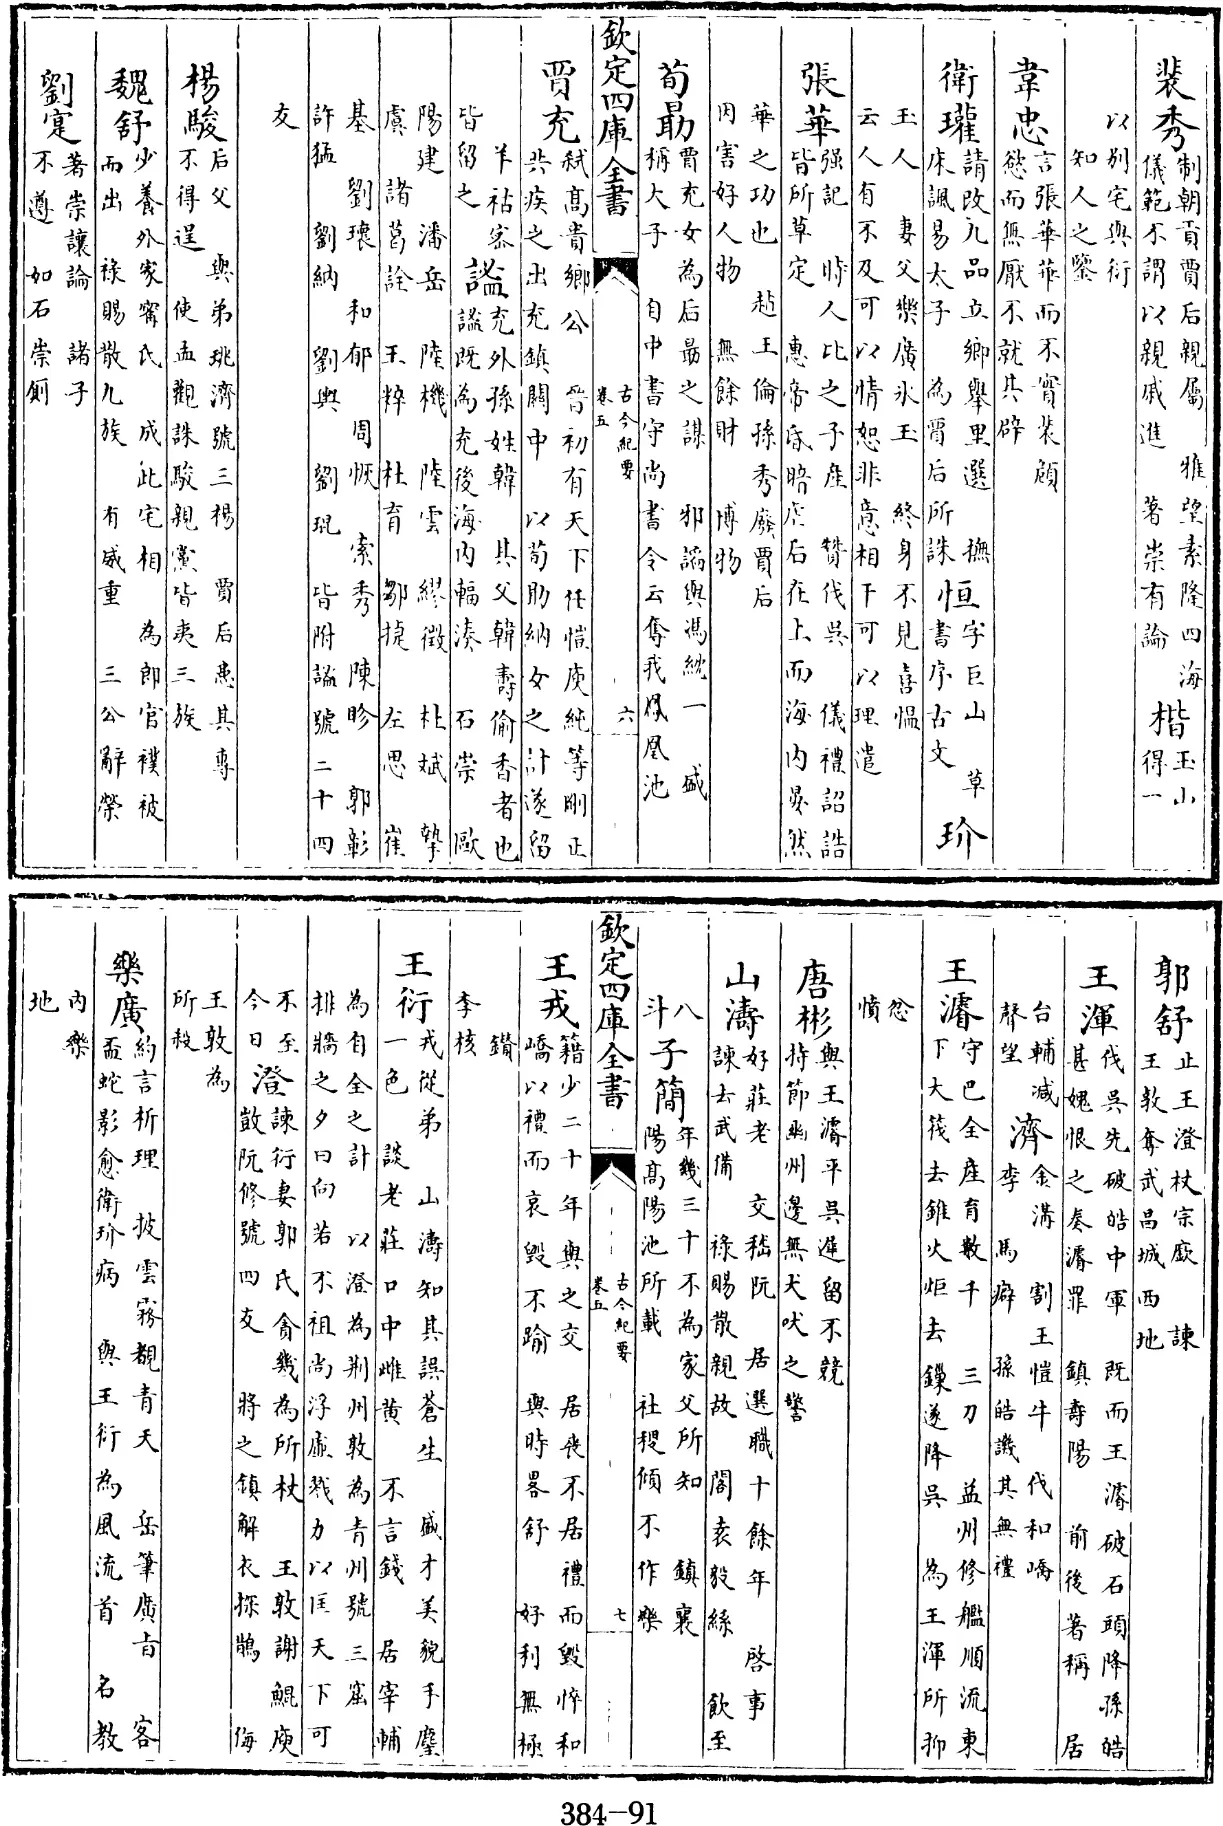 裴秀制朝貢賈后親屬 雅望素隆四海
儀範不謂以親戚進 著崇有論
楷玉山
得一
以別宅與衍
知人之鑒
韋忠言張華華而不實裴頠
慾而無厭不就其辟
衛瓘請改九品立鄉舉里選 撫
床諷易太子 為賈后所誅
恒字巨山 草
書序古文
玠
玉人 妻父樂廣氷玉 終身不見喜愠
云人有不及可以情恕非意相干可以理遣
張華强記 時人比之子產 贊伐吳 儀禮詔誥
皆所草定 惠帝昏暗虐后在上而海内晏然
華之功也 趙王倫孫秀廢賈后
因害好人物 無餘財 博物
荀勗賈充女為后勗之謀 邪諂與馮紞一 盛
稱太子 自中書守尚書令云奪我鳳凰池
欽定四庫全書
古今紀要
卷五
六
賈充弑髙貴鄉公 晉初有天下任愷庾純等剛正
共疾之出充鎮關中 以荀勗納女之計遂留
羊祜宻
皆留之
謐充外孫姓韓 其父韓壽偷香者也
謐既為充後海内輻湊 石崇 歐
陽建 潘岳 陸機 陸雲 繆徵 杜斌 摯
虞 諸葛詮 王粹 杜育 鄒捷 左思 崔
基 劉瓌 和郁 周恢 索秀 陳眕 郭彰
許猛 劉納 劉輿 劉琨 皆附謐號二十四
友
楊駿后父 與弟珧濟號三楊 賈后惡其專
不得逞 使孟觀誅駿親黨皆夷三族
魏舒少養外家甯氏 成此宅相 為郎官襆被
而出 祿賜散九族 有威重 三公辭榮
劉寔著崇讓論 諸子
不遵 如石崇厠
郭舒止王澄杖宗廞 諫
王敦奪武昌城西地
王渾伐吳先破皓中軍 既而王濬破石頭降孫皓
甚媿恨之奏濬罪 鎮壽陽 前後著稱 居
台輔減
聲望
濟金溝 割王愷牛 伐和嶠
李 馬癖 孫皓譏其無禮
王濬守巴全産育數千 三刀 益州修艦順流東
下大筏去錐火炬去鏁遂降吳 為王渾所抑
忿
憤
唐彬與王濬平吳遲留不競
持節幽州邊無犬吠之警
山濤好莊老 交嵇阮 居選職十餘年 啓事
諫去武備 祿賜散親故 閣袁毅絲 飲至
八
斗子
簡年幾三十不為家父所知 鎮襄
陽高陽池所載 社稷傾不作樂
欽定四庫全書
古今紀要
卷五
七
王戎籍少二十年與之交 居喪不居禮而毀悴和
嶠以禮而哀毀不踰 與時畧舒 好利無極
鑽
李核
王衍戎從弟 山濤知其誤蒼生 盛才美貌手麈
一色 談老莊口中雌黄 不言錢 居宰輔
為自全之計 以澄為荆州敦為青州號三窟
排牆之夕曰向若不祖尚浮虛戮力以匡天下可
不至
今日
澄諫衍妻郭氏貪幾為所杖 王敦謝鯤庾
敳阮修號四友 將之鎮解衣探鵲 侮
王敦為
所殺
樂廣約言析理 披雲霧覩青天 岳筆廣㫖 客
盃蛇影愈衛玠病 與王衍為風流首 名教
内樂
地
384-91